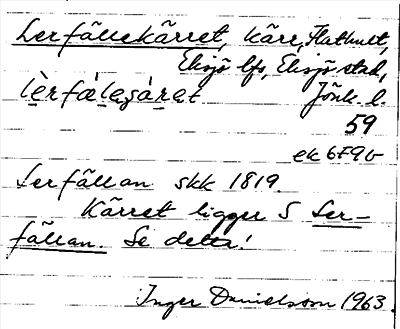 Lerfällekärret, kärr, Flathult,
Eksjö lfs, Eksjö stad,
lèrfæ̀lasɔ́ret Jönk. l.
59
ek 679 b
Lerfällan skk 1819.
Kärret ligger S Ler-
fällan. Se detta!
Inger Danielsson 1963.